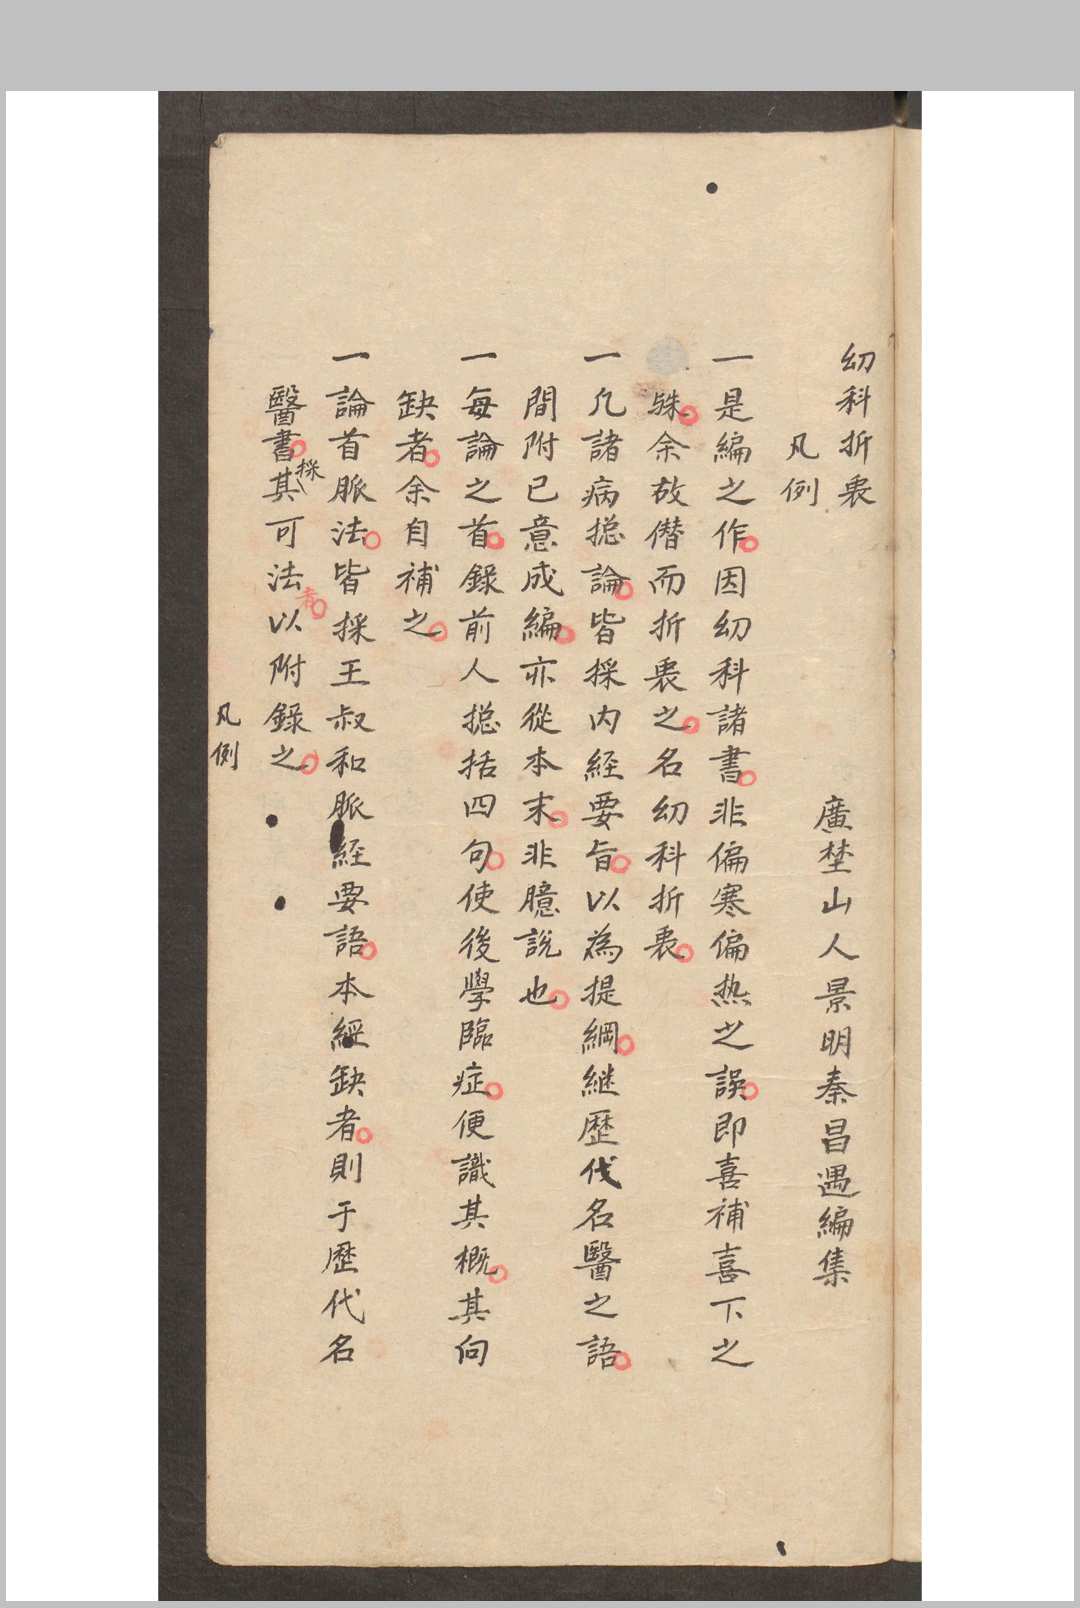 幼科折衷
凡例
廣埜山人景明秦昌遇編集
一是編之作因幼科諸書非偏寒偏热之誤即喜補喜下之
殊余故僣而折衷之名幼科折衷
一凡諸病摠論皆採内経要旨以為提綱継歴代名醫之語
間附已意成編亦從本末非臆説也
一每論之首錄前人摠括四句使後學臨症便識其概其向
缺者余自補之
一論首脈法皆採王叔和脈経要語本經缺者則于歷代名
醫書採其可法者以附錄之
凡例